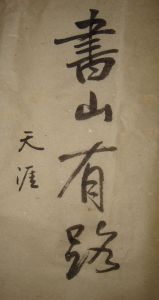 書山有路
天涯